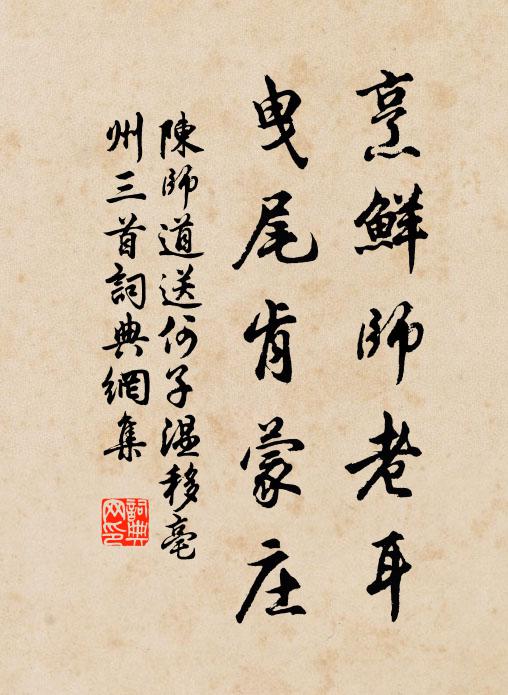 烹鮮師老耳
曳尾肯蒙庄
陳師道送何子温移亳
州三首詞典網集
詞典
网印